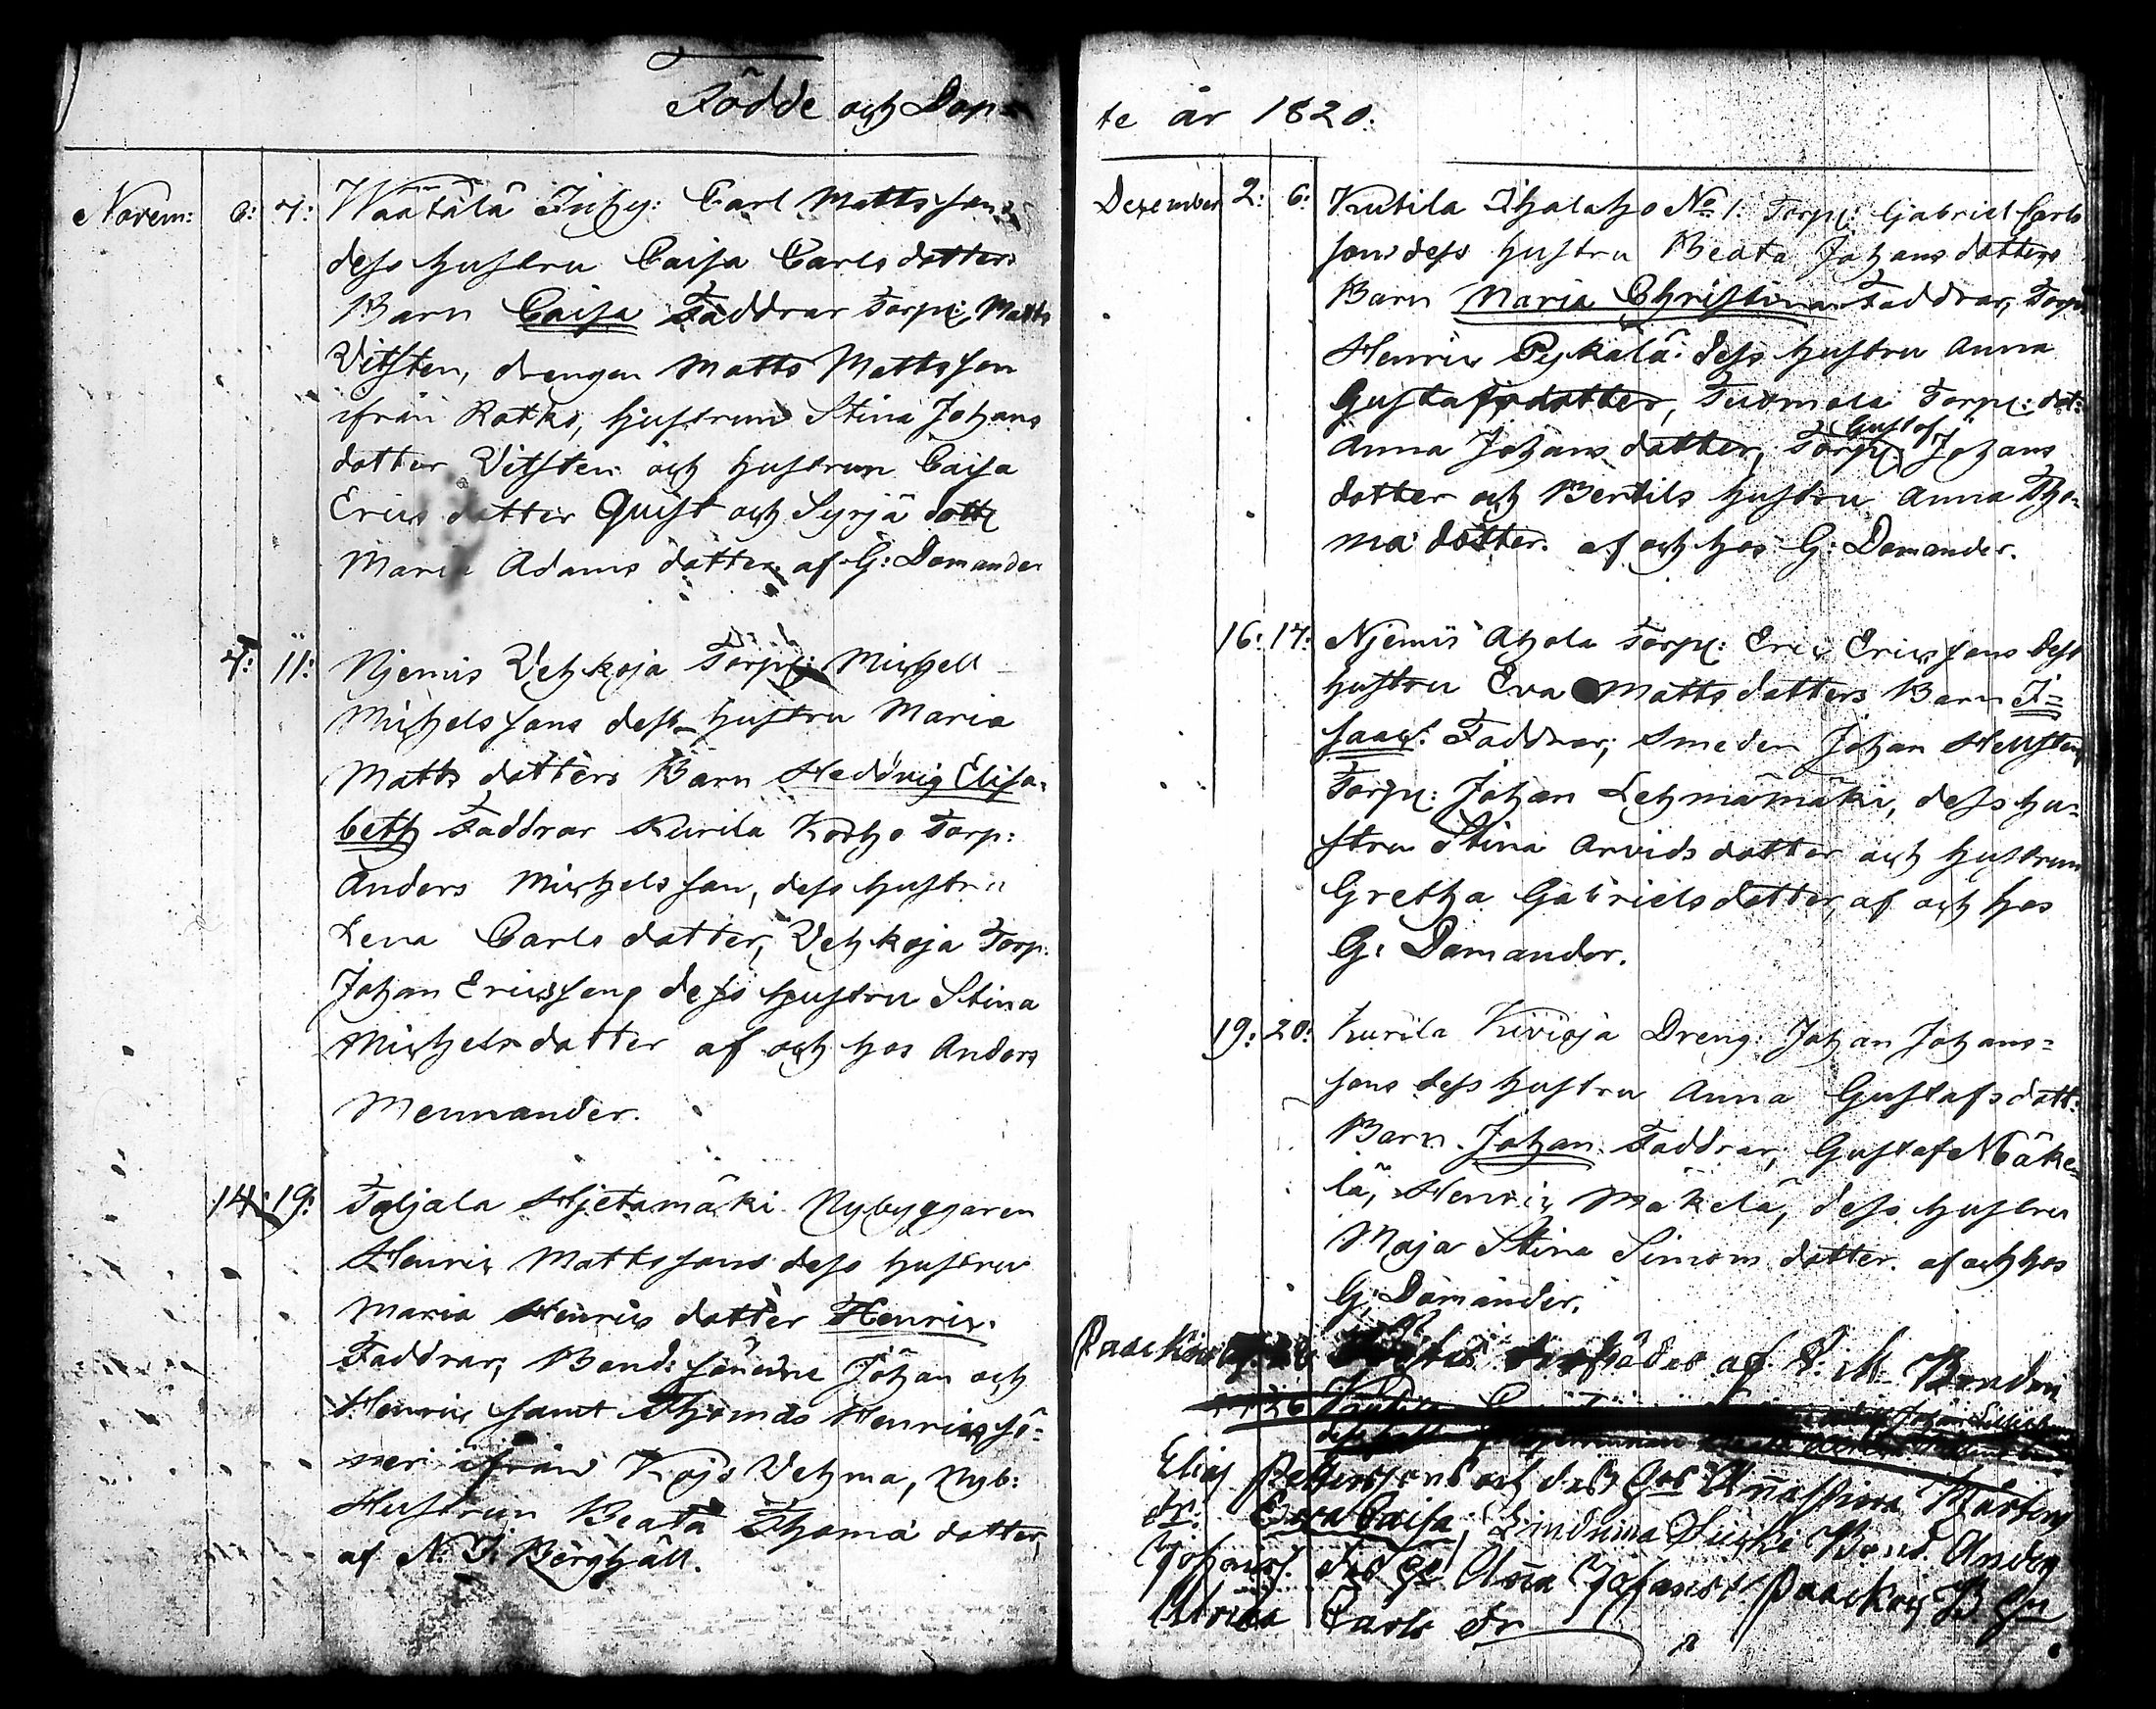 Födde och Dop=
Novem: 6: 7: Wäätälä Inhy: Carl Mattssons
dess hustru Caisa Carls dotters
Barn Caisa Faddrar Torp: Matts
Vitsten, drengen Matts Mattsson
ifrån Ratko, hustrun Stina Johans
dotter Vitsten och hustrun Caisa
Erics dotter Quist och Syrjä dott
Maria Adams dotter af G: Domander
7: 11: Njemis Vehkoja Torp: Michell
Michelssons dess hustru Maria
Matts dotters Barn Heddvig Elisa=
beth Faddrar Kurila Torp:
Anders Michelsson, dess hustru
Lena Carls dotter, Vehkoja Torp.
Johan Ericsson, dess hustru Stina
Michels dotter af och hos Anders
Mennander.
14: 19: Taljala Hjetamäki Nybyggaren
Henric Mattssons dess hustru
Maria Henrics dotter Henric.
Faddrar; Bond: sönerne Johan och
Henric samt Thomas Henrics sö=
ner ifrån Kojo Vehma, Nyb:
Hustrun Beata Thoma dotter,
af N: J: Berghäll.
te år 1820:
December 2: 6: Kutila Ihalaho No 1: Torp: Gabriel Carls
sons dess hustru Beata Johans dotters
Barn Maria Christina Faddrar, Torp
Henric Pykälä: dess hustru Anna
Gustafs dotter, Tuomola Torp: dot=
Gustaf
Anna Johans dotter, Torp: Johans
dotter och Bertils hustru Anna Tho=
ma dotter. af och hos G: Domander.
16: 17: Njemis Ahola Torp: Eric Ericssons dess
hustru Eva Matts dotters Barn I=
saac. Faddrar; Smeden Johan Hellsten,
Torp: Johan Lehmämäki, dess hu=
stru Stina Arvids dotter och hustrun
Gretha Gabriels dotter, af och hos
G: Domander.
19: 20: Kurila Kivioja Dreng: Johan Johans=
sons dess hustru Anna Gustafs dott:
Barn Johan. Faddrar; Gustaf Mäke=
lä, Henric Mäkelä, dess hustru
Maja Stina Simons dotter. af och hos
G: Domander.
af Bonden
26 Kutila
Elias Petterssons och dess
dr: Eva Caisa; Bond. Anders
Johanss. Anna Johans
Ulrica Carls dr